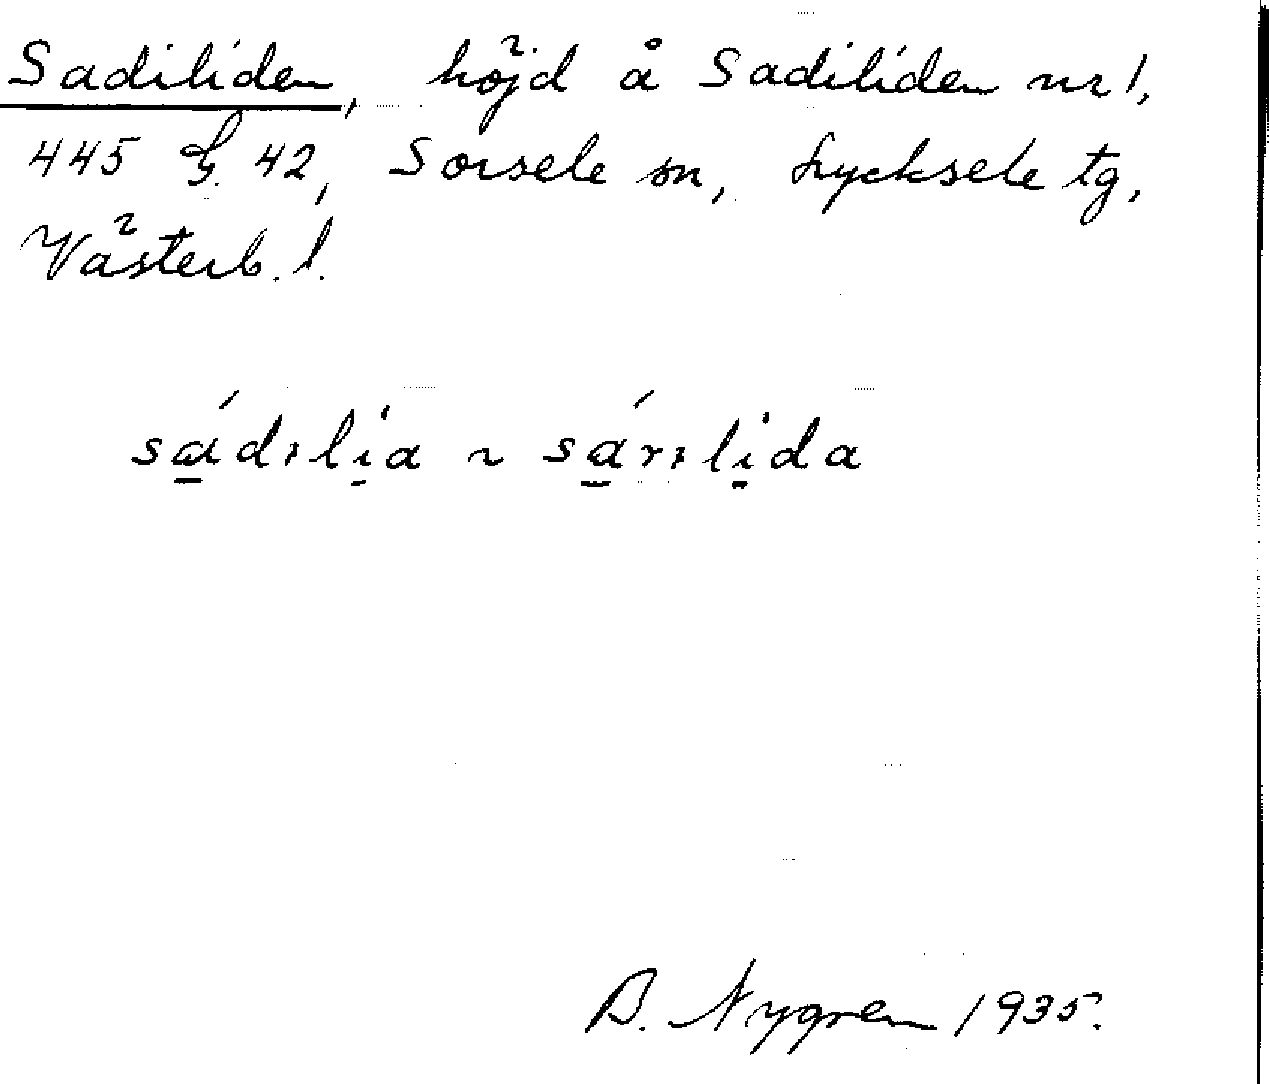 Sadiliden, höjd å Sadiliden nr 1,
445 G. 42, Sorsele sn, Lycksele tg,
Västerb. l.
sád:lia ~ sár:lida
B. Nygren 1935.